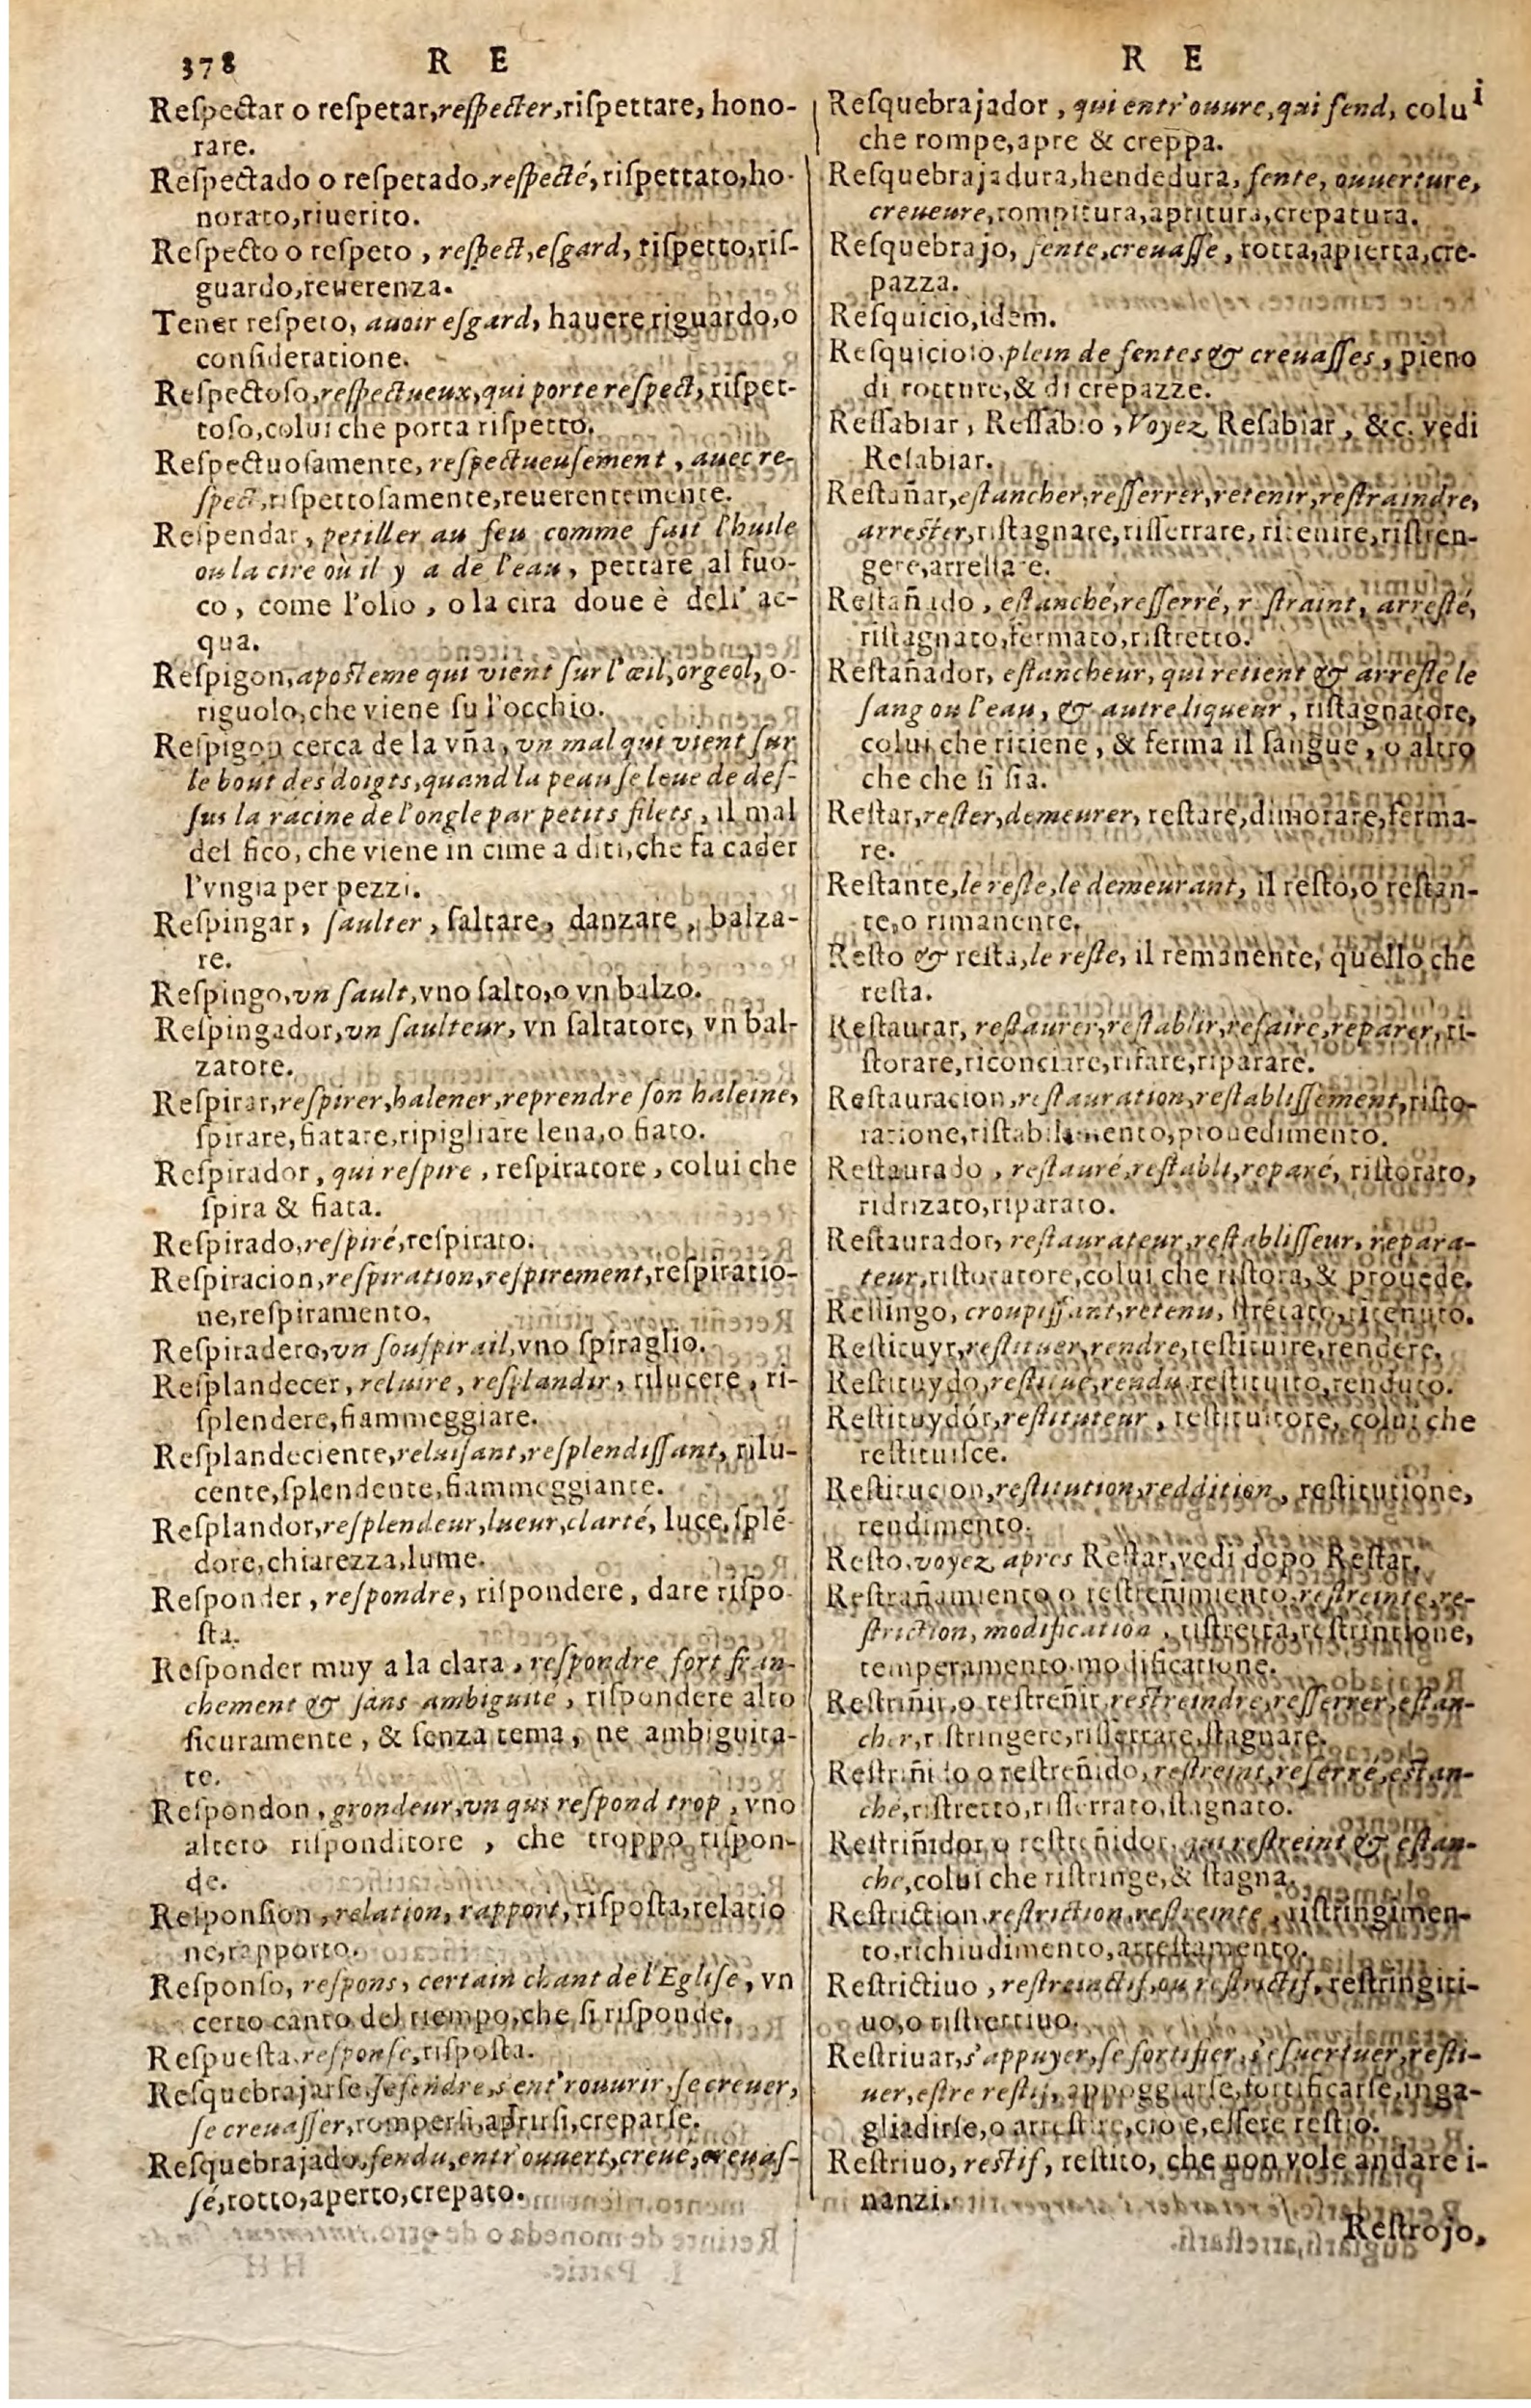 378 R E
Reſpectar o reſpetar, reſpecter, riſpettare, hono-
rare.
Reſpectado o reſpetado, reſpecté, riſpettato, ho-
norato, riuerito.
Reſpecto o reſpeto, reſpect, eſgard, riſpetto, riſ-
guardo, reuerenza.
Tener reſpeto, auoir eſgard, hauere riguardo, o
conſideratione.
Reſpectoſo, reſpectueux, qui porte reſpect, riſpet-
toſo, colui che porta riſpetto.
Reſpectuoſamente, reſpectueuſement, auec re-
ſpect, riſpettoſamente, reuerentemente.
Reſpendar, petiller au feu comme fait l'huile
ou la cire où il y a de l'eau, pettare al fuo-
co, come l'olio, o la cira doue è dell' ac-
qua.
Reſpigon, aposteme qui vient ſur l'œil, orgeol, o-
riguolo, che viene ſu l'occhio.
Reſpigon cerca de la vña, vn mal qui vient ſur
le bout des doigts, quand la peau ſe leue de deſ-
ſus la racine de l'ongle par petits filets, il mal
del fico, che viene in cime a diti, che fa cader
l'vngia per pezzi.
Reſpingar, ſaulter, ſaltare, danzare, balza-
re.
Reſpingo, vn ſault, vno ſalto, o vn balzo.
Reſpingador, vn ſaulteur, vn ſaltatore, vn bal-
zatore.
Reſpirar, reſpirer, halener, reprendre ſon haleine,
ſpirare, fiatare, ripigliare lena, o fiato.
Reſpirador, qui reſpire, reſpiratore, colui che
ſpira & fiata.
Reſpirado, reſpiré, reſpirato.
Reſpiracion, reſpiration, reſpirement, reſpiratio-
ne, reſpiramento.
Reſpiradero, vn ſouſpirail, vno ſpiraglio.
Reſplandecer, reluire, reſplandir, rilucere, ri-
ſplendere, fiammeggiare.
Reſplandeciente, reluiſant, reſplendiſſant, rilu-
cente, ſplendente, fiammeggiante.
Reſplandor, reſplendeur, lueur, clarté, luce, ſplé-
dore, chiarezza, lume.
Reſponder, reſpondre, riſpondere, dare riſpo-
ſta.
Reſponder muy a la clara, reſpondre fort fran-
chement & ſans ambiguité, riſpondere alto
ſicuramente, & ſenza tema, ne ambiguita-
te.
Reſpondon, grondeur, vn qui reſpond trop, vno
altero riſponditore, che troppo riſpon-
de.
Reſponſion, relation, rapport, riſpoſta, relatio
ne, rapporto.
Reſponſo, reſpons, certain chant de l'Egliſe, vn
certo canto del tiempo, che ſi riſponde.
Reſpueſta, reſponſe, riſpoſta.
Reſquebrajarſe, ſe fendre, s'entr'ouurir, ſe creuer,
ſe creuaſſer, romperſi, aprirſi, creparſe.
Reſquebrajado, fendu, entr'ouuert, creué, creuaſ-
ſé, rotto, aperto, crepato.
R E
Reſquebrajador, qui entr'ouure, qui fend, colui
che rompe, apre & creppa.
Reſquebrajadura, hendedura, fente, ouuerture,
creueure, rompitura, apritura, crepatura.
Reſquebrajo, fente, creuaſſe, rotta, apierta, cre-
pazza.
Reſquicio, idem.
Reſquicioſo, plein de fentes & creuaſſes, pieno
di rotture, & di crepazze.
Reſſabiar, Reſſabio, Voyez Reſabiar, &c. vedi
Reſabiar.
Reſtañar, eſtancher, reſſerrer, retenir, reſtraindre,
arreſter, riſtagnare, riſſerrare, ritenire, riſtren-
gere, arreſtare.
Reſtañado, eſtanché, reſſerré, reſtraint, arreſté,
riſtagnato, fermato, riſtretto.
Reſtañador, eſtancheur, qui retient & arreſte le
ſang ou l'eau, & autre liqueur, riſtagnatore,
colui che ritiene, & ferma il ſangue, o altro
che che ſi ſia.
Reſtar, reſter, demeurer, reſtare, dimorare, ferma-
re.
Reſtante, le reſte, le demeurant, il reſto, o reſtan-
te, o rimanente.
Reſto & reſta, le reſte, il remanente, quello che
reſta.
Reſtaurar, reſtaurer, reſtablir, refaire, reparer, ri-
ſtorare, riconciare, rifare, riparare.
Reſtauracion, reſtauration, reſtabliſſement, riſto-
ratione, riſtabilimento, prouedimento.
Reſtaurado, reſtauré, reſtabli, reparé, riſtorato,
ridrizato, riparato.
Reſtaurador, reſtaurateur, reſtabliſſeur, repara-
teur, riſtoratore, colui che riſtora, & prouede.
Reſtingo, croupiſſant, retenu, ſtrecato, ritenuto.
Reſtituyr, reſtituer, rendre, reſtituire, rendere.
Reſtituydo, reſtitué, rendu, reſtituito, renduto.
Reſtituydór, reſtituteur, reſtituitore, colui che
reſtituiſce.
Reſtitucion, reſtitution, reddition, reſtitutione,
rendimento.
Reſto, voyez apres Reſtar, vedi dopo Reſtar.
Reſtrañamiento o reſtreñimiento, reſtreinte, re-
ſtriction, modification, riſtretta, reſtrintione,
temperamento, modificatione.
Reſtriñir, o reſtreñir, reſtreindre, reſſerrer, eſtan-
cher, riſtringere, riſſerrare, ſtagnare.
Reſtriñido o reſtreñido, reſtreint, reſerré, eſtan-
ché, riſtretto, riſſerrato, ſtagnato.
Reſtriñidor, o reſtreñidor, qui reſtreint & eſtan-
che, colui che riſtringe, & ſtagna.
Reſtriction, reſtriction, reſtreinte, riſtringimen-
to, richiudimento, arreſtamento.
Reſtrictiuo, reſtreinctif, ou reſtrictif, reſtringiti-
uo, o riſtrettiuo.
Reſtriuar, s'appuyer, ſe fortifier, s'eſuertuer, reſti-
uer, eſtre reſtif, appoggiarſe, fortificarſe, inga-
gliadirſe, o arreſtire, cio e, eſſere reſtio.
Reſtriuo, reſtif, reſtito, che non vole andare i-
nanzi.
Reſtrojo,